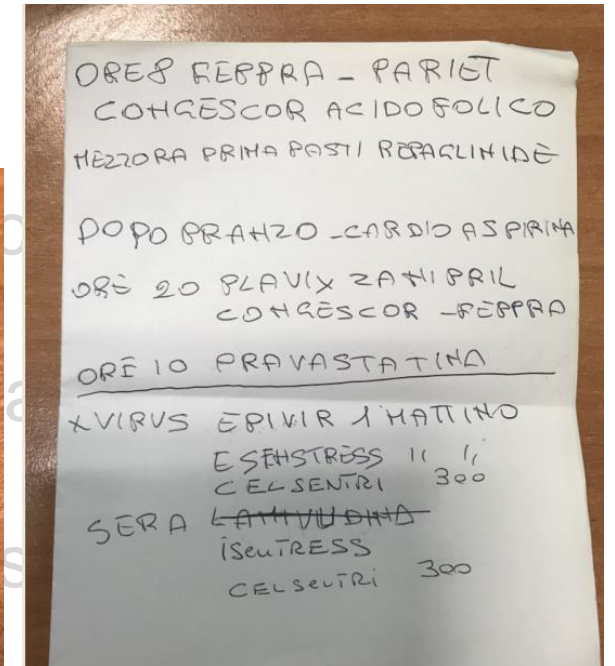 ORE 8 KEPPRA - PARIET
CONGESCOR ACIDO FOLICO
MEZZORA PRIMA PASTI REPAGLINIDE
DOPO PRANZO - CARDIOASPIRINA
ORE 20 PLAVIX ZANIPRIL
CONGESCOR - KEPPRA
ORE 10 PRAVASTATINA
X VIRUS EPIVIR 1 MATTINO
ESENSTRESS 11 11
CELSENTRI 300
SERA LAMIVUDINA
ISENTRESS
CELSENTRI 300